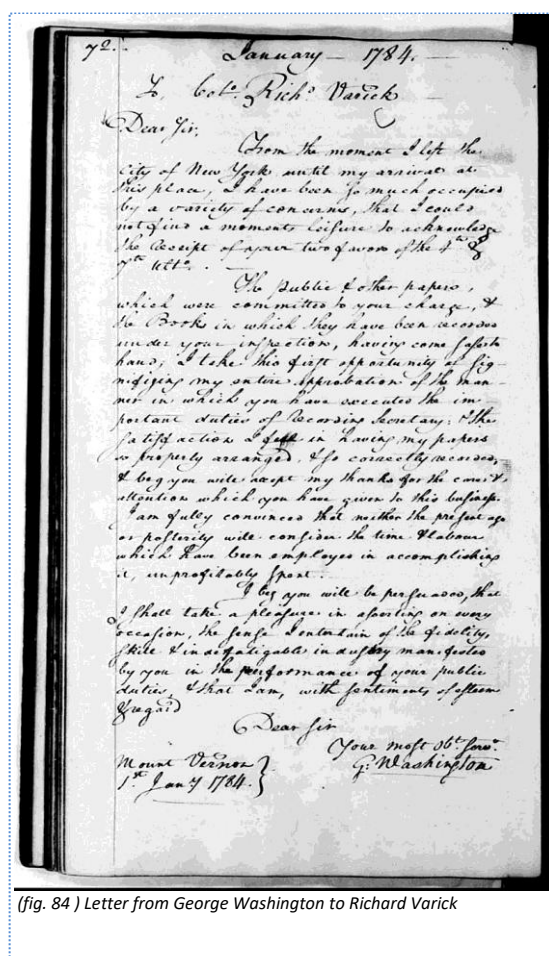 72.
January — 1784.
To Colo. Richd. Varick
Dear Sir,
From the moment I left the
city of New York until my arrival at
this place, I have been so much occupied
by a variety of concerns, that I could
not find a moments leisure to acknowledge
the Receipt of your two favors of the 4th &
7th Ulto.
The public & other papers,
which were committed to your charge, &
the Books in which they have been recorded
under your inspection, having come safe to
hand, I take this first opportunity of sig-
nifying my entire approbation of the man-
ner in which you have executed the im
portant duties of Recording Secretary; & the
satisfaction I felt in having my papers
so properly arranged, & so correctly recorded,
& beg you will accept my thanks for the care &
attention which you have given to this business.
I am fully convinced that neither the present age
or posterity will consider the time & labour
which have been employed in accomplishing
it, unprofitably spent.
I beg you will be persuaded, that
I shall take a pleasure in asserting on every
occasion, the sense I entertain of the fidelity,
skill & indefatigable industry manifested
by you in the performance of your public
duties, & that I am, with sentiments of esteem
& regard
Dear Sir
Your most obt. servt.
Mount Vernon
G: Washington
1st Jany 1784.
(fig. 84 ) Letter from George Washington to Richard Varick